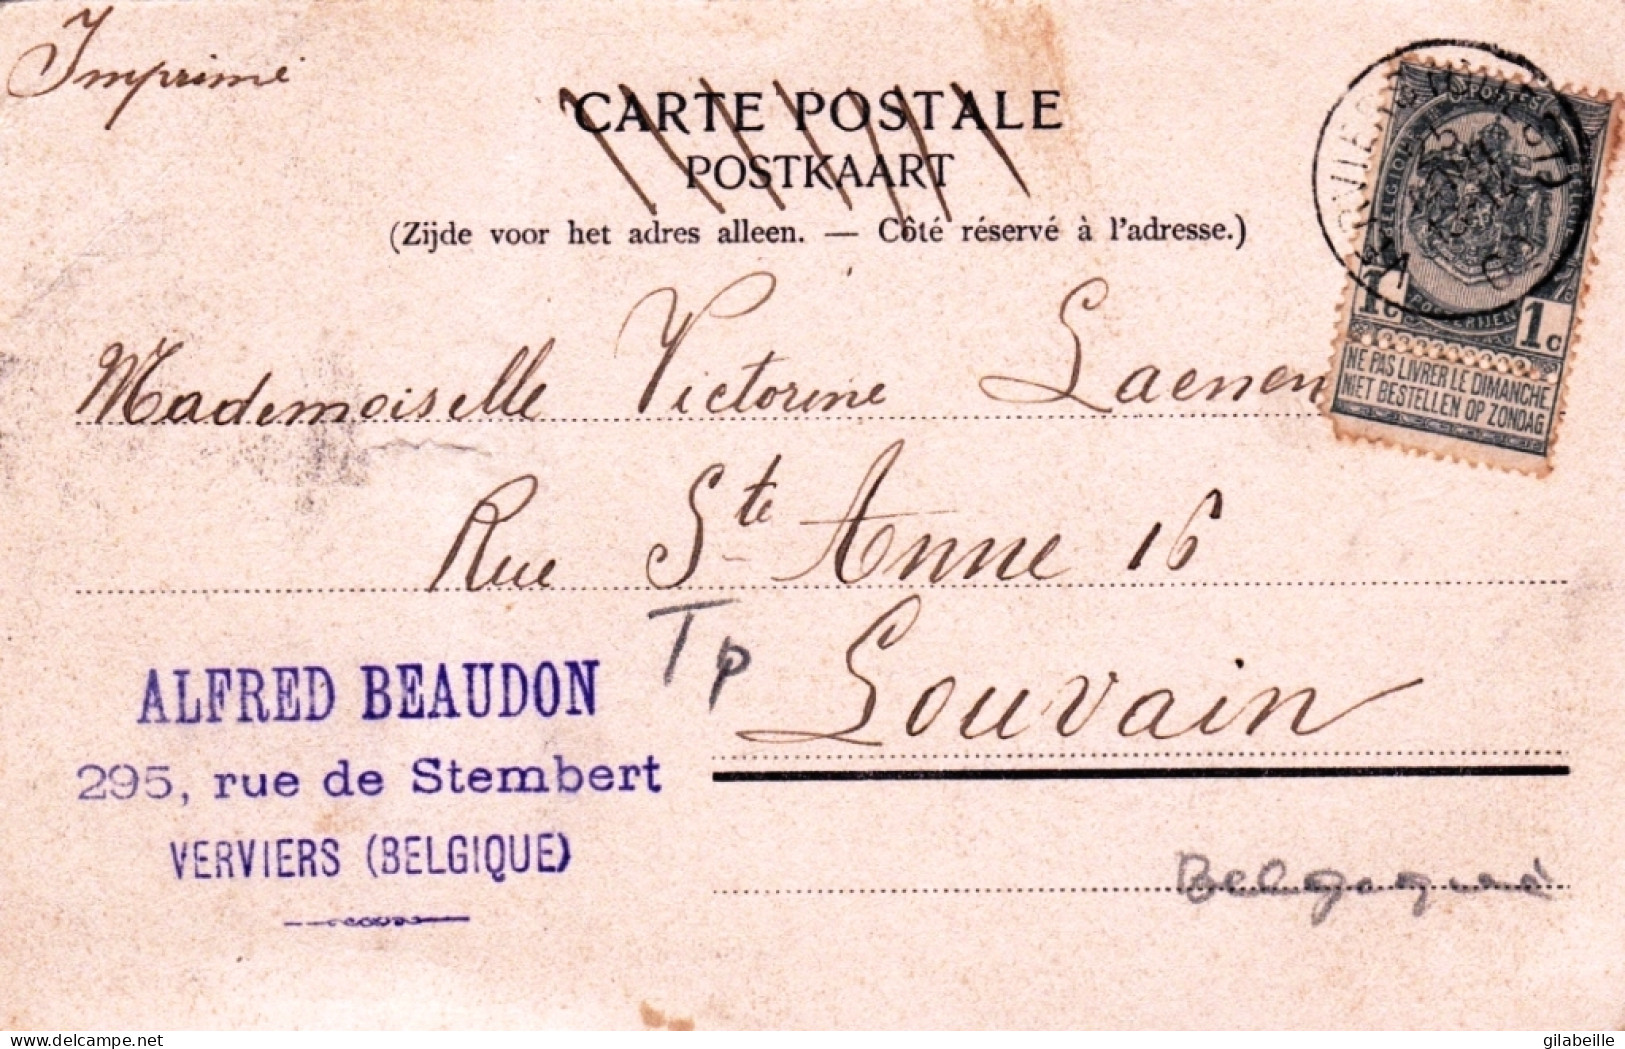 Imprimé
CARTE POSTALE
POSTKAART
(Zijde voor het adres alleen. — Côté réservé à l'adresse.)
Mademoiselle Victorine Laenen
Rue Ste Anne 16
Louvain
Tp
ALFRED BEAUDON
295, rue de Stembert
VERVIERS (BELGIQUE)
1c 1c
NE PAS LIVRER LE DIMANCHE
NIET BESTELLEN OP ZONDAG
delcampe.net
gilabeille